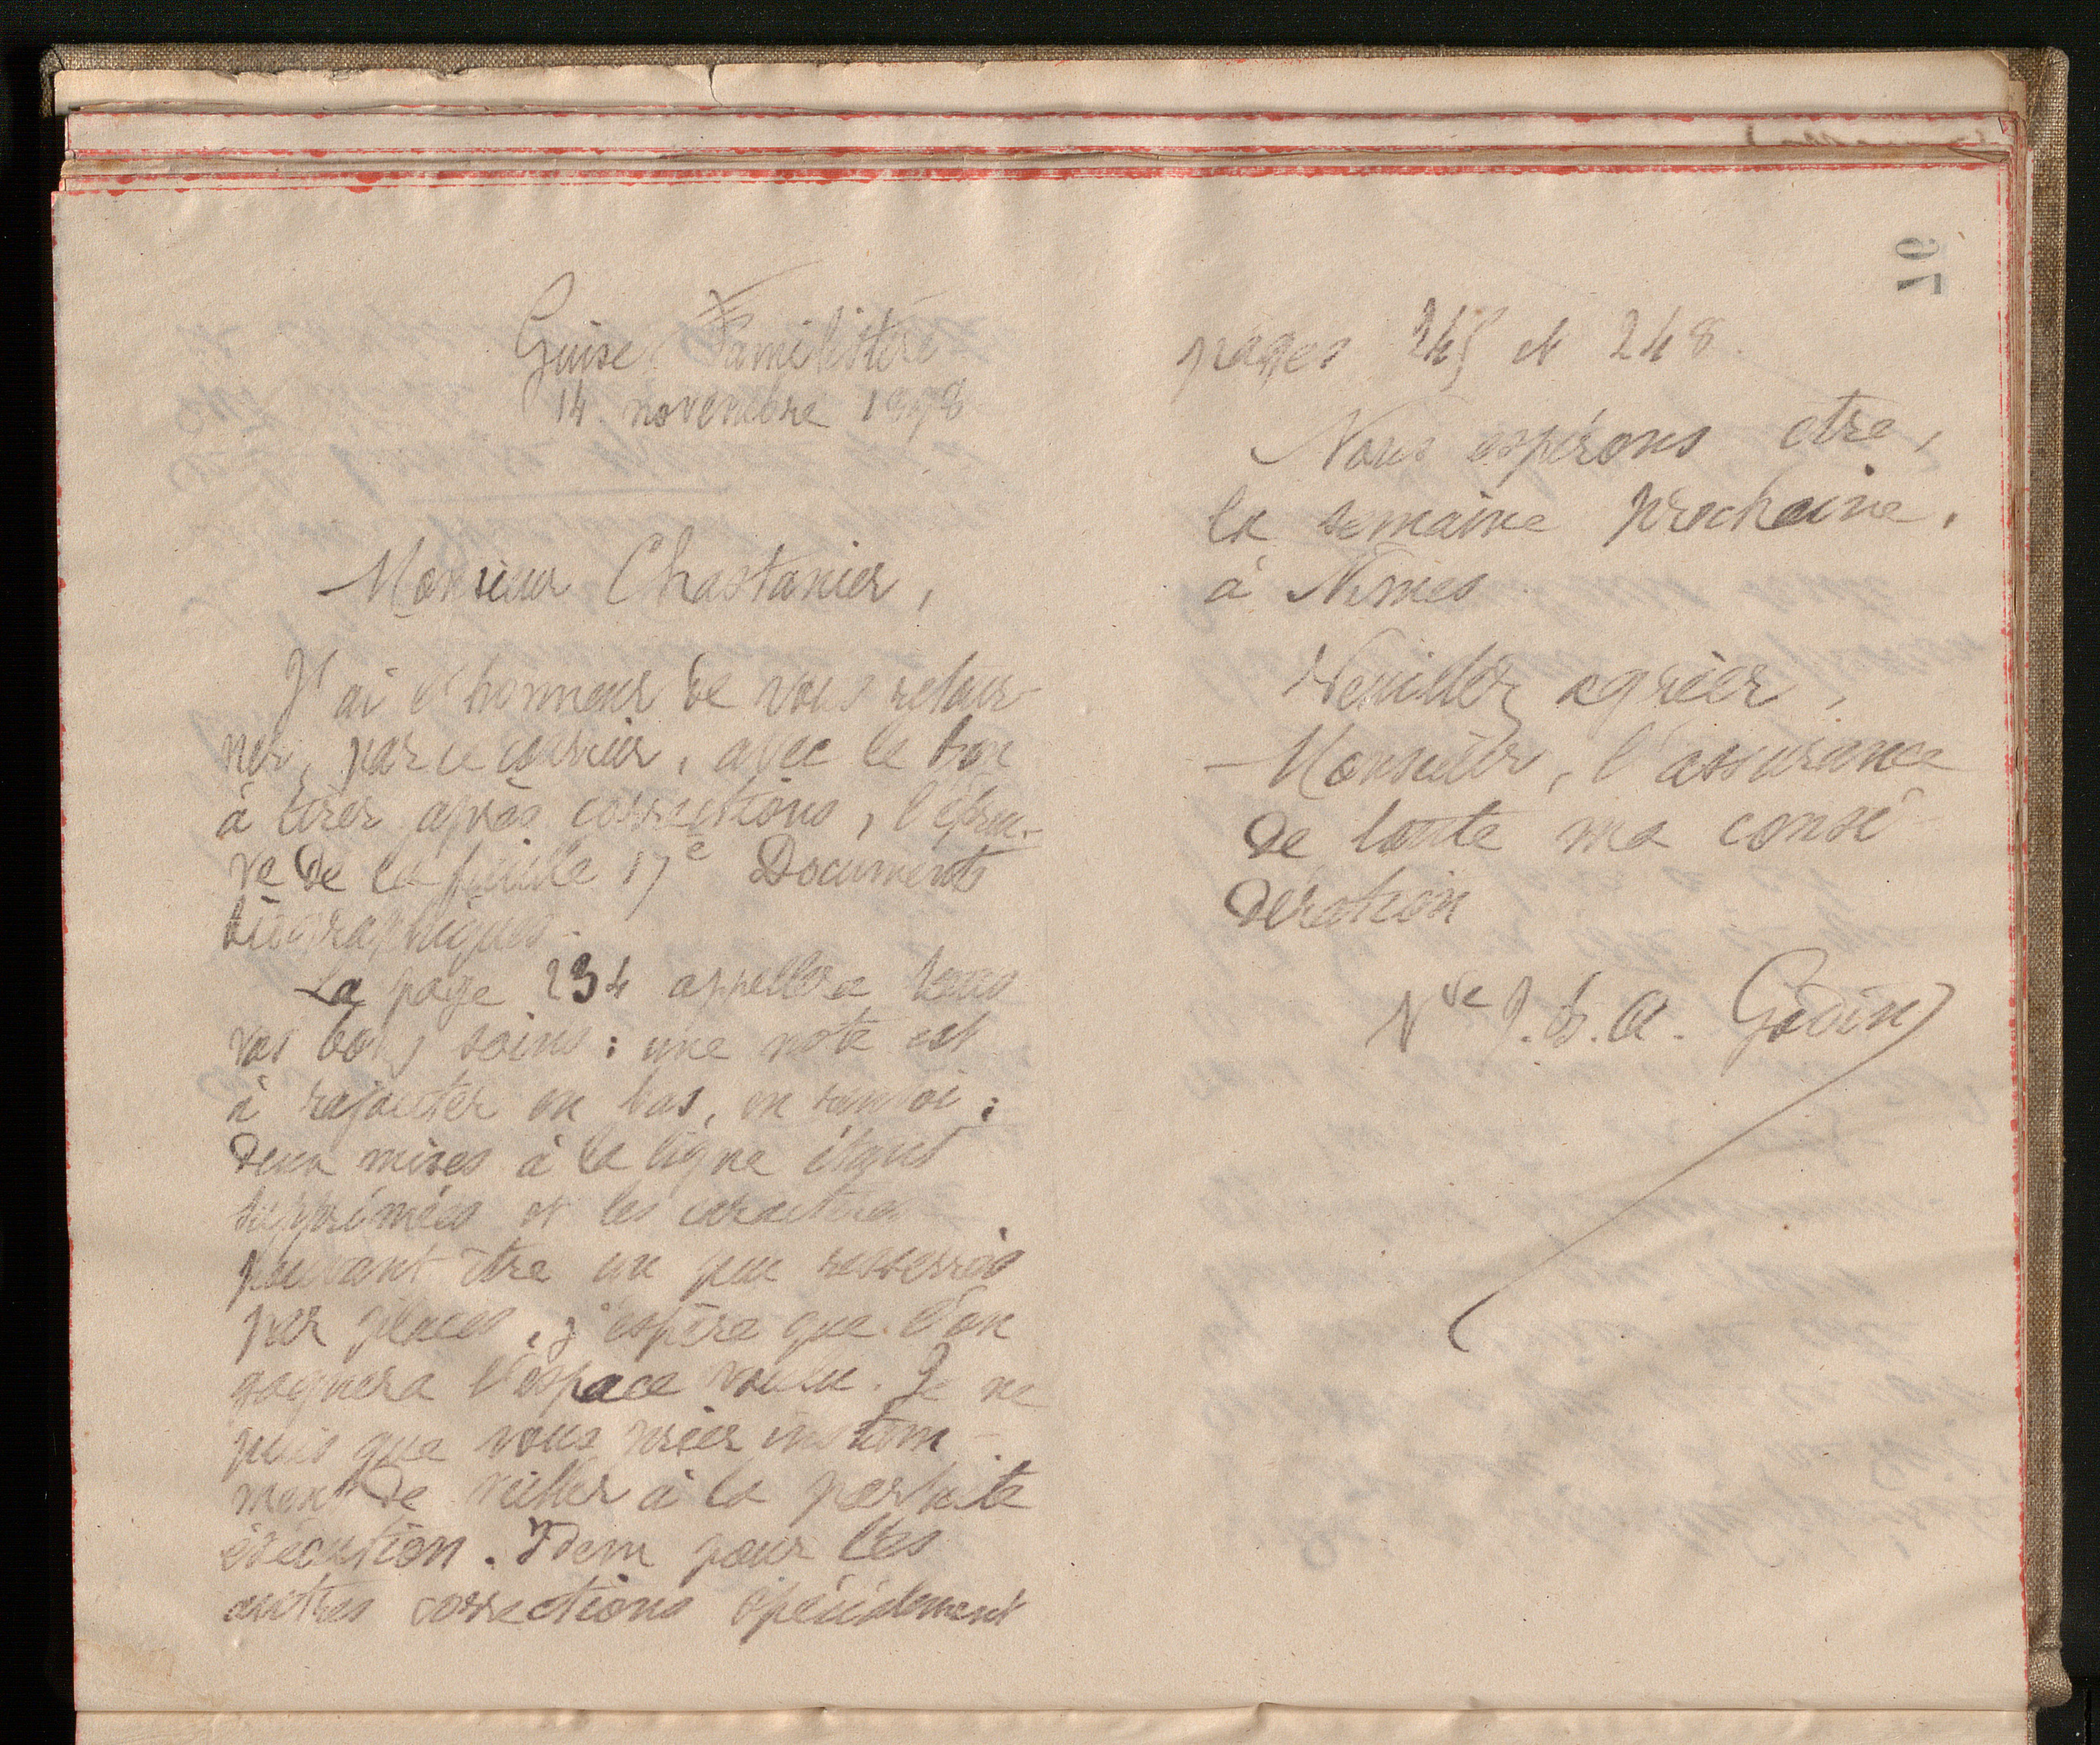 Guise Familistère
14 novembre 1898
Monsieur Chastanier,
J'ai l'honneur de vous retour-
ner, par ce courrier, avec le bon
à tirer après corrections, l'épreu-
ve de la feuille 17e Documents
biographiques.
La page 234 appellera tous
vos bons soins : une note est
à rajouter en bas, en renvoi ;
deux mises à la ligne étant
supprimées et les caractères
pouvant être un peu resserrés
par places, j'espère que l'on
gagnera l'espace voulu. Je ne
puis que vous prier instam-
ment de veiller à la parfaite
exécution. Idem pour les
autres corrections spécialement
70
pages 245 et 248.
Nous espérons etre,
la semaine prochaine,
à Nîmes.
Veuillez agréer,
Monsieur, l'assurance
de toute ma consi
dération
Vve J. B. A. Godin